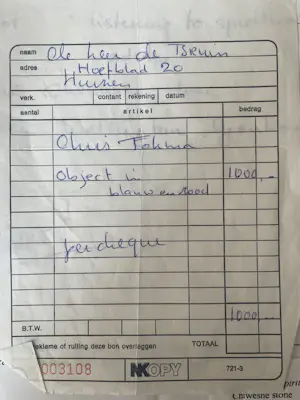 listening to
naam de heer de BRuin
adres Hoefblad 20
Huizen
verk. contant rekening datum
aantal artikel bedrag
Chris Fokma
Object in 1000,-
blauw en rood
per cheque
1000,-
B.T.W. TOTAAL
eklame of ruiling deze bon overleggen
003108 NKOPY 721-3
stone